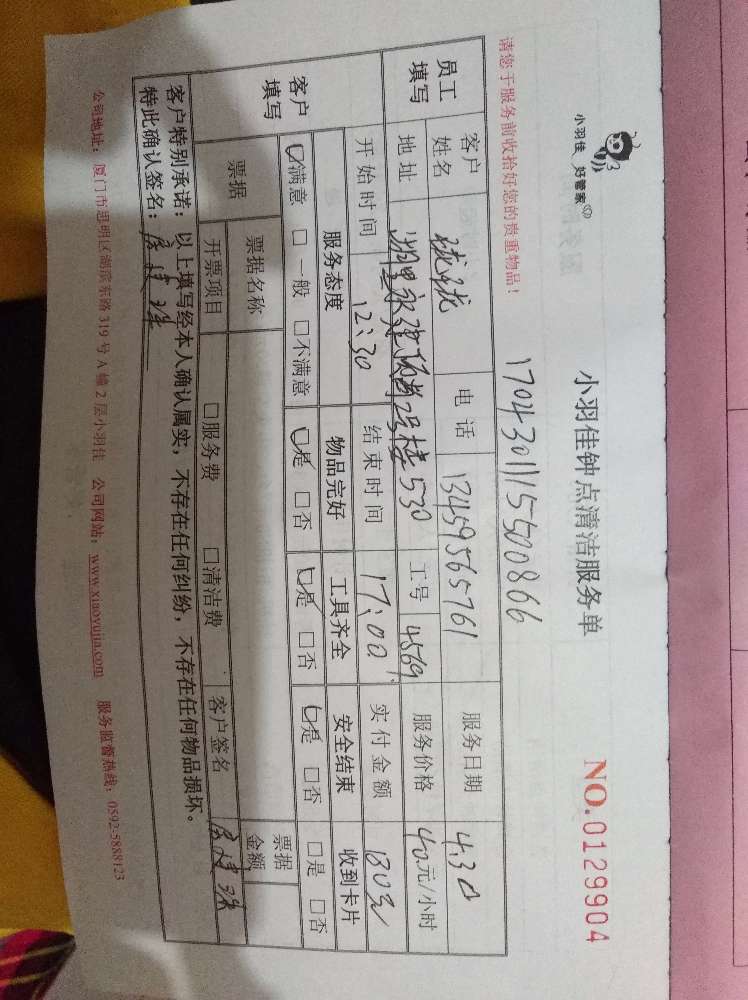 小羽佳 好管家
小羽佳钟点清洁服务单
NO.0129904
请您于服务前收拾好您的贵重物品！
17043011115500866
员工填写
客户姓名
电话 13459565761
服务日期 4.30
地址
2号楼530
工号 4569
服务价格 40元/小时
开始时间 12:30
结束时间 17:00
实付金额 180元
客户填写
服务态度 物品完好 工具齐全 安全结束 收到卡片
☑满意 □一般 □不满意 ☑是 □否 ☑是 □否 ☑是 □否 □是 □否
票据
票据名称
票据金额
开票项目 □服务费 □清洁费 客户签名
客户特别承诺：以上填写经本人确认属实，不存在任何纠纷，不存在任何物品损坏。
特此确认签名：
公司地址：厦门市思明区湖滨东路319号A幢2层小羽佳 公司网站：www.xiaoyujia.com 服务监督热线：0592-5888123